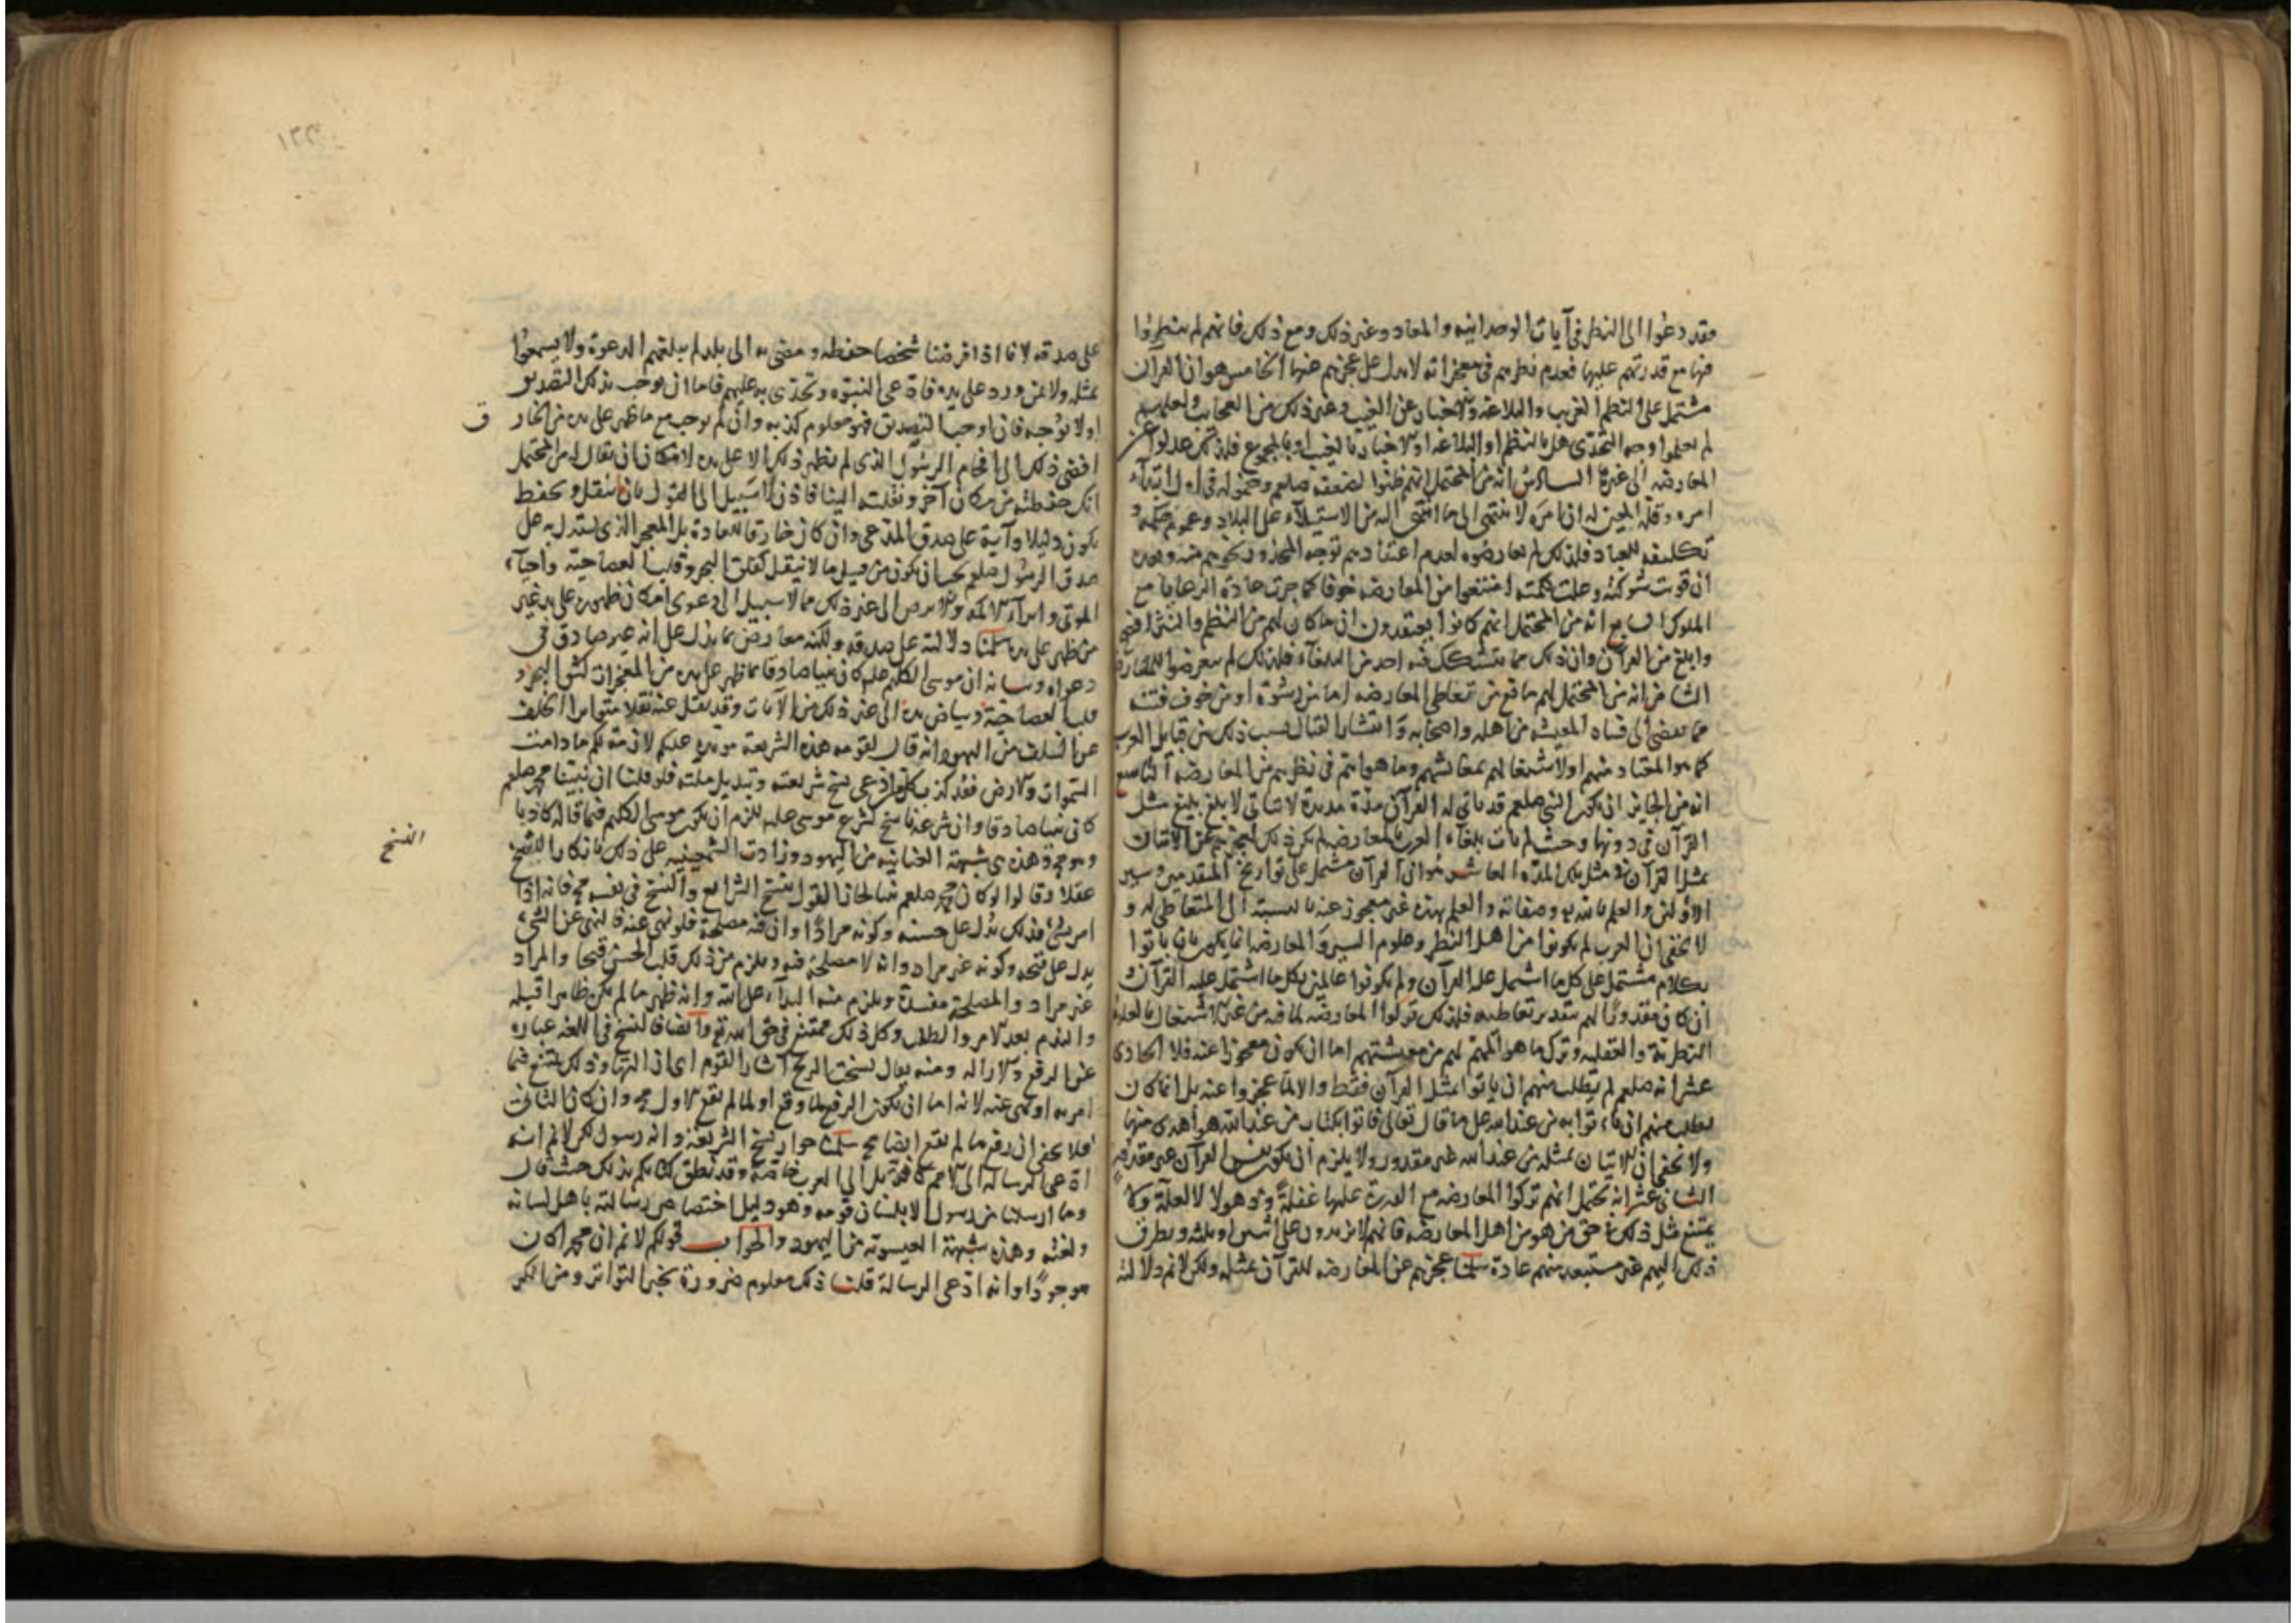 وقد دعوا الى النظر فى آيات الوحدانيه والمعاد وغير ذلك ومع ذلك فانهم لم ينظروا
فيها مع قدرتهم عليها فعدم نظرهم فى معجزاته لا يدل على عجزهم عنها الخامس هو ان القرآن
مشتمل على النظم الغريب والبلاغه والاخبار عن الغيب وغير ذلك من العجايب ولعلهم
لم يعلموا وجه التحدى هل بالنظم او البلاغه او الاخبار بالغيب او بالمجموع فلذلك عدلوا عن
المعارضه الى غيرها السادس انه من المحتمل انهم ظنوا لضعفه صلعم وخموله فى ابتداء
امره وقلة المعين له ان امره لا ينتهى الى ما انتهى اليه من الاستيلاء على البلاد وعموم حكمه و
تكليفه للعباد فلذلك لم يعارضوه لعدم اعتقادهم توجه المحذور نحوهم منه وبعد
ان قويت شوكته وعلت كلمته امتنعوا من المعارضه خوفا كما جرت عادة الرعايا مع
الملوك السابع انه من المحتمل انهم كانوا يعتقدون ان ما كان لهم من النظم والنثر افصح
وابلغ من القرآن وان ذلك مما يتشكك فيه احد من البلغاء فلذلك لم يتعرضوا للمعارضه
الثامن انه من المحتمل لهم مانع من تعاطى المعارضه اما من رشوة او من خوف فتنة
مما يفضى الى فساد المعيشه من اهله واصحابه وانتشار القتال بسبب ذلك من قبايل العرب
كما هو المعتاد منهم او لاشتغالهم بمعائشهم وما هو اهم فى نظرهم من المعارضه التاسع
انه من الجايز ان يكون النبى صلعم قد تأتى له القرآن مدة مديدة لا يتأتى لابلغ بليغ مثل
القرآن فى دونها وحيث لم يأت بلغاء العرب بالمعارضه لم يكن ذلك لعجزهم عن الاتيان
بمثل القرآن فى مثل تلك المدة العاشر هو ان القرآن مشتمل على تواريخ المتقدمين وسير
الاولين والعلم بالله وصفاته والعلم بهذه غير معجوز عنه بالنسبة الى المتعاطى له و
لا يخفى ان العرب لم يكونوا من اهل النظر وعلوم السير والمعارضه انما يكون بان ياتوا
بكلام مشتمل على كل ما اشتمل عليه القرآن ولم يكونوا عالمين بكل ما اشتمل عليه القرآن و
ان كان مقدورا لهم بتقدير تعاطيه فلذلك تركوا المعارضه لما فيه من غير الاشتغال بالعلوم
النظرية والعقليه وترك ما هو المهم لهم من معيشتهم اما ان يكون معجوزا عنه فلا الحادى
عشر انه صلعم لم يطلب منهم ان ياتوا بمثل القرآن فقط والا لما عجزوا عنه بل انما كان
يطلب منهم ان ياتوا به من عند الله على ما قال تعالى فاتوا بكتاب من عند الله هو اهدى منهما
ولا يخفى ان الاتيان بمثله من عند الله غير مقدور ولا يلزم ان يكون نفس القرآن غير مقدور
الثانى عشر انه يحتمل انهم تركوا المعارضه مع القدرة عليها غفلة وذهولا لا لعلة ولا
يمتنع مثل ذلك فى حق من هو من اهل المعارضه فانهم لا يزيدون على اثنين او ثلثه وتطرق
ذلك اليهم غير مستبعد منهم عادة سلمنا عجزهم عن المعارضه للقرآن بمثله ولكن لا نم دلالته
على صدقه لانا اذا فرضنا شخصا حفظه ومضى به الى بلد لم يبلغهم الدعوة ولا يسمعوا
بمثله ولا بمن ورد على يده فادعى النبوة وتحدى به عليهم فاما ان يوجب ذلك التصديق
او لا يوجبه فان اوجب التصديق فهو معلوم كذبه وان لم يوجب مع ما ظهر على يده من الخار
ق
افضى ذلك الى افحام الرسول الذى لم يظهر ذلك الا على يده لامكان ان يقال له من المحتمل
انك حفظته من مكان آخر ونقلته الينا فاذن لا سبيل الى القول بان ما ينقل ويحفظ
يكون دليلا وآية على صدق المدعى وان كان خارقا للعادة بل المعجز الذى يستدل به على
صدق الرسول صلعم يجب ان يكون من قبيل ما لا ينقل كفلق البحر وقلب العصا حية واحياء
الموتى وابراء الاكمه والابرص الى غير ذلك مما لا سبيل الى دعوى امكان ظهوره على يد غير
من ظهر على يده سلمنا دلالته على صدقه ولكنه معارض بما يدل على انه غير صادق فى
دعواه وبيانه ان موسى الكليم عليه كان نبيا صادقا بما ظهر على يده من المعجزات كشق البحر و
قلب العصا حية وبياض يده الى غير ذلك من الآيات وقد نقل عنه نقلا متواترا الخلف
عن السلف من اليهود انه قال لقومه هذه الشريعة مؤبدة عليكم لازمة لكم ما دامت
السموات والارض فقد كذب كل من ادعى نسخ شريعته وتبديل ملته فلو قلنا ان نبينا محمد صلعم
كان نبيا صادقا وان شرعه ناسخ لشرع موسى عليه للزم ان يكون موسى الكليم فيما قاله كاذبا
وهو مح وهذه هى شبهة العنانيه من اليهود وزادت الشمعنيه على ذلك بانكار النسخ
النسخ
عقلا وقالوا لو كان محمد صلعم نبيا لجاز القول بنسخ الشرايع والنسخ فى نفسه مح فانه اذا
امر بشئ فذلك يدل على حسنه وكونه مرادا وان فيه مصلحة فلو نهى عنه فالنهى عن الشئ
يدل على قبحه وكونه غير مراد وانه لا مصلحة فيه ويلزم من ذلك قلب الحسن قبيحا والمراد
غير مراد والمصلحة مفسدة ويلزم منه البداء على الله وانه ظهر ما لم يكن ظاهرا قبله
والندم بعد الامر والطلب وكل ذلك ممتنع فى حق الله تع وايضا فالنسخ فى اللغه عبارة
عن الرفع والازاله ومنه يقال نسخت الريح آثار القوم اى ازالتها وذلك ممتنع فيما
امر به او نهى عنه لانه اما ان يكون الرفع لما وقع او لما لم يقع الاول مح وان كان الثانى
فلا يخفى ان رفع ما لم يقع ايضا مح سلمنا جواز نسخ الشريعة وانه رسول لكن لا نم انه
ادعى الرساله الى الامم كافة بل الى العرب خاصة وقد نطق كتابكم بذلك حيث قال
وما ارسلنا من رسول الا بلسان قومه وهو دليل اختصاص رسالته باهل لسانه
ولغته وهذه شبهة العيسوية من اليهود والجواب قولكم لا نم ان محمدا كان
موجودا وانه ادعى الرسالة قلنا ذلك معلوم ضرورة بخبر التواتر ومن انكر